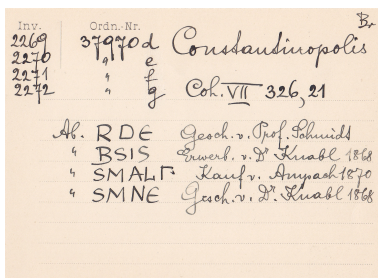 Br
Inv. Ordn.-Nr.
2269 37970 d Constantinopolis
2270 " e
2271 " f
2272 " g Coh. VII 326,21
Ab. RDE Gesch. v. Prof. Schmidt
" BSIS Erwerb. v. Dr Knabl 1868
" SMALΓ Kauf v. Ampach 1870
" SMNE Gesch. v. Dr Knabl 1868